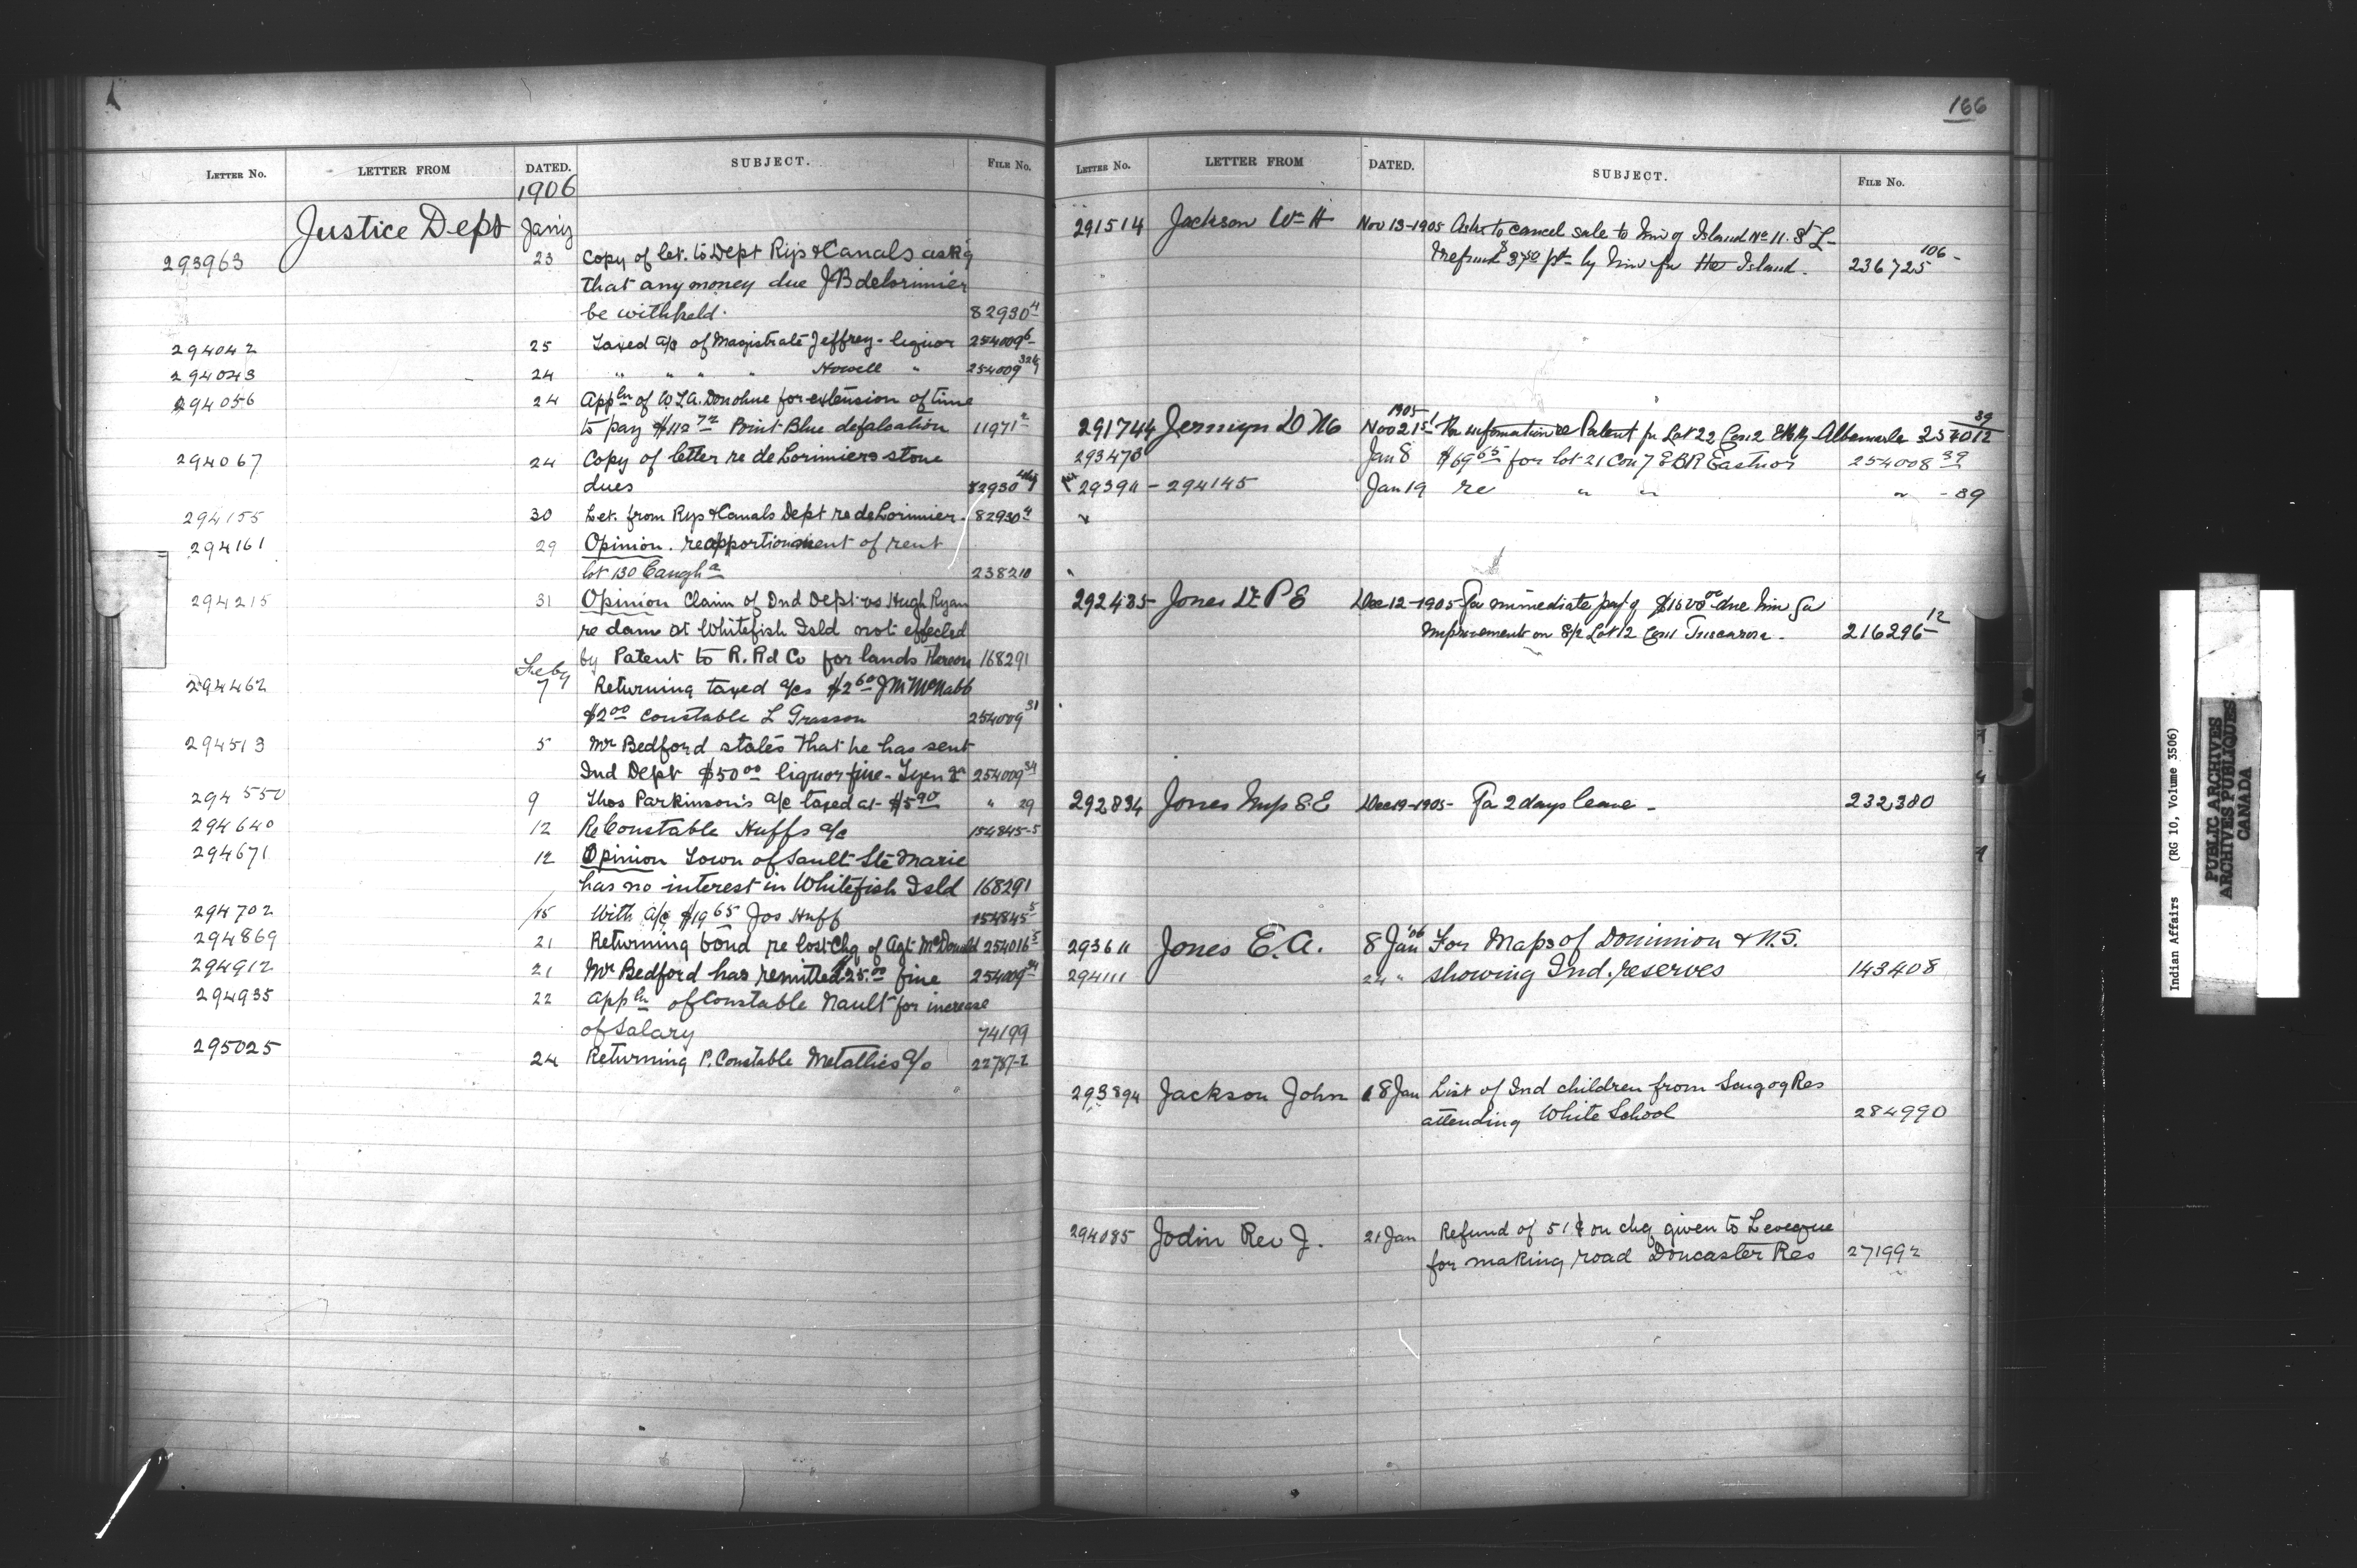 LETTER NO. LETTER FROM DATED. SUBJECT. FILE NO.
1906
Justice Dept Jany
293963 23 Copy of let. to Dept Rys & Canals ask'g
that any money due JB deLorimier
be withheld. 82930 4
294042 25 Taxed a/c of Magistrate Jeffrey - liquor 254009 6
294043 24 " " " " Howell " 254009
294056 24 Appln of W L A. Donohue for extension of time
to pay $112 72 Point Blue defalcation 11971 2
294067 24 Copy of letter re de Lorimiers stone
dues 82930
294155 30 Let. from Rys & Canals Dept re deLorimier. 82930 4
294161 29 Opinion. reapportionment of rent
lot 130 Caugha 238210
294215 31 Opinion Claim of Ind Dept vs Hugh Ryan
re dam at Whitefish Isld not effected
by Patent to R. Rd Co for lands thereon 168291
Feby
294462 7 Returning taxed a/cs $2 60 J M McNabb
$2 00 Constable L Grasson 254009 31
294513 5 Mr Bedford states that he has sent
Ind Dept $50 00 liquor fine - 254009 34
294550 9 Thos Parkinson's a/c taxed at $5 90 " 29
294640 12 Re Constable Huffs a/c 154845-5
294671 12 Opinion Town of Sault Ste Marie
has no interest in Whitefish Isld 168291
294702 15 With a/c $19 65 Jos Huff 154845 5
294869 21 Returning bond re lost Chq of Agt McDonald 254016 5
294912 21 Mr Bedford has remitted 25.00 fine 254009 34
294935 22 Appln of Constable Nault for increase
of Salary 74199
295025 24 Returning P. Constable Metallics a/c 22787-2
166
LETTER NO. LETTER FROM DATED. SUBJECT. FILE NO.
291514 Jackson Wm H Nov 13-1905 Asks to cancel sale to him of Island No 11. St L-
& refund $3 50 pd by him for the Island. 236725 106-
1905
291744 Jermyn D M Nov 21st For information re Patent for Lot 22 Con 2 Albemarle 254012 39
293473 Jan 8 $69 65 for lot 21 Con 7 E B R Eastnor 254008 39
293911 - 294145 Jan 19 re " " " - 89
292485 Jones Dr P E Dec 12-1905 - For immediate pay't of $1500 00 due him for
Improvements on S/2 Lot 12 Con 1 Tuscarora. 216296 12
292834 Jones Insp S. E Dec 19-1905 - For 2 days leave - 232380
293611 Jones E. A. 8 Jan '06 For Maps of Dominion & N.S.
294111 24 " showing Ind. reserves 143408
293894 Jackson John 18 Jan List of Ind children from Scugog Res
attending White School 284990
294085 Jodin Rev J. 21 Jan Refund of 51¢ on chq given to Leveque
for making road Doncaster Res 271992
Indian Affairs (RG 10, Volume 3506)
PUBLIC ARCHIVES
ARCHIVES PUBLIQUES
CANADA